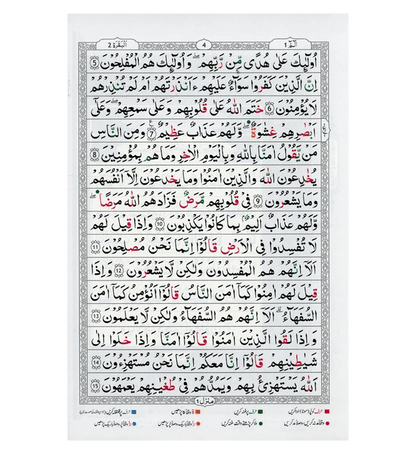 الٓمّٓ ١
4
البقرة 2
اُولٰٓئِكَ عَلٰى هُدًى مِّنْ رَّبِّهِمْ ۙ وَاُولٰٓئِكَ هُمُ الْمُفْلِحُوْنَ ٥
اِنَّ الَّذِيْنَ كَفَرُوْا سَوَآءٌ عَلَيْهِمْ ءَاَنْذَرْتَهُمْ اَمْ لَمْ تُنْذِرْهُمْ
لَا يُؤْمِنُوْنَ ٦ خَتَمَ اللّٰهُ عَلٰى قُلُوْبِهِمْ وَعَلٰى سَمْعِهِمْ ؕ وَعَلٰٓى
اَبْصَارِهِمْ غِشَاوَةٌ ؗ وَّلَهُمْ عَذَابٌ عَظِيْمٌ ٧ وَمِنَ النَّاسِ
مَنْ يَّقُوْلُ اٰمَنَّا بِاللّٰهِ وَبِالْيَوْمِ الْاٰخِرِ وَمَا هُمْ بِمُؤْمِنِيْنَ ٨
يُخٰدِعُوْنَ اللّٰهَ وَالَّذِيْنَ اٰمَنُوْا وَمَا يَخْدَعُوْنَ اِلَّآ اَنْفُسَهُمْ
وَمَا يَشْعُرُوْنَ ٩ فِيْ قُلُوْبِهِمْ مَّرَضٌ فَزَادَهُمُ اللّٰهُ مَرَضًا
وَلَهُمْ عَذَابٌ اَلِيْمٌۢ بِمَا كَانُوْا يَكْذِبُوْنَ ١٠ وَاِذَا قِيْلَ لَهُمْ
لَا تُفْسِدُوْا فِى الْاَرْضِ قَالُوْٓا اِنَّمَا نَحْنُ مُصْلِحُوْنَ ١١
اَلَآ اِنَّهُمْ هُمُ الْمُفْسِدُوْنَ وَلٰكِنْ لَّا يَشْعُرُوْنَ ١٢ وَاِذَا
قِيْلَ لَهُمْ اٰمِنُوْا كَمَآ اٰمَنَ النَّاسُ قَالُوْٓا اَنُؤْمِنُ كَمَآ اٰمَنَ
السُّفَهَآءُ ؕ اَلَآ اِنَّهُمْ هُمُ السُّفَهَآءُ وَلٰكِنْ لَّا يَعْلَمُوْنَ ١٣
وَاِذَا لَقُوا الَّذِيْنَ اٰمَنُوْا قَالُوْٓا اٰمَنَّا ۖ وَاِذَا خَلَوْا اِلٰى
شَيٰطِيْنِهِمْ قَالُوْٓا اِنَّا مَعَكُمْ اِنَّمَا نَحْنُ مُسْتَهْزِءُوْنَ ١٤
اَللّٰهُ يَسْتَهْزِئُ بِهِمْ وَيَمُدُّهُمْ فِيْ طُغْيَانِهِمْ يَعْمَهُوْنَ ١٥
منزل ١